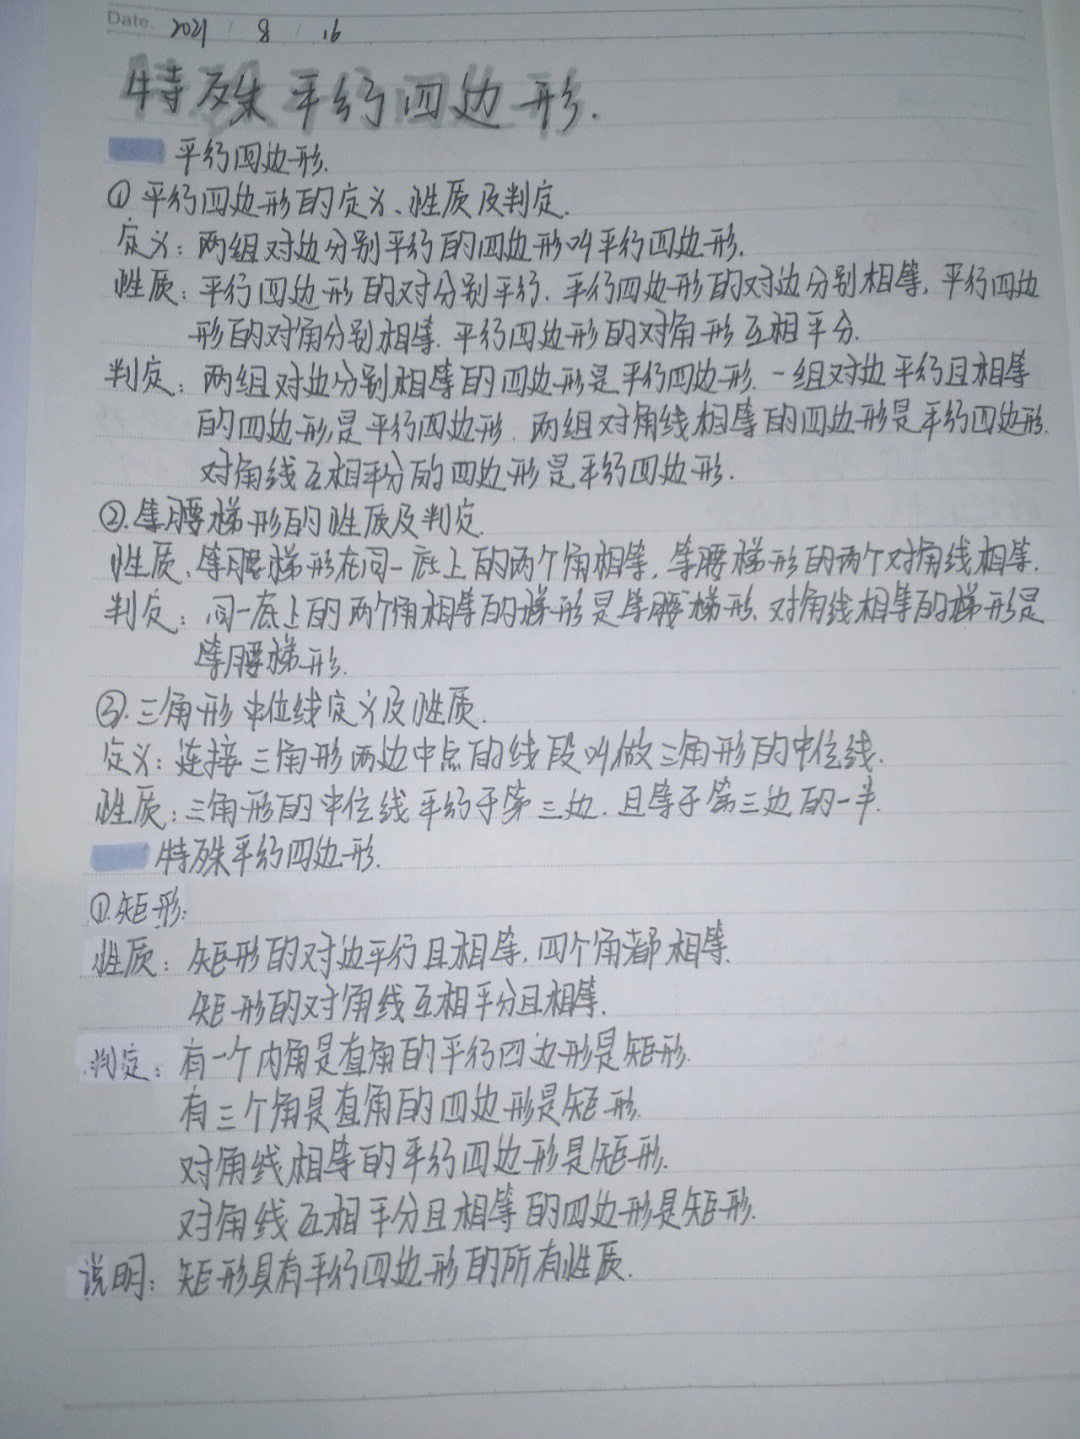 Date. 2021 / 8 / 16
特殊平行四边形.
平行四边形.
①平行四边形的定义、性质及判定.
定义：两组对边分别平行的四边形叫平行四边形.
性质：平行四边形的对分别平行.平行四边形的对边分别相等,平行四边
形的对角分别相等.平行四边形的对角形互相平分.
判定：两组对边分别相等的四边形是平行四边形.一组对边平行且相等
的四边形是平行四边形.两组对角线相等的四边形是平行四边形.
对角线互相平分的四边形是平行四边形.
②.等腰梯形的性质及判定.
性质、等腰梯形在同一底上的两个角相等,等腰梯形的两个对角线相等.
判定：同一底上的两个角相等的梯形是等腰梯形、对角线相等的梯形是
等腰梯形.
③.三角形中位线定义及性质.
定义：连接三角形两边中点的线段叫做三角形的中位线.
性质：三角形的中位线平行于第三边.且等于第三边的一半.
特殊平行四边形.
①.矩形：
性质：矩形的对边平行且相等,四个角都相等.
矩形的对角线互相平分且相等.
判定：有一个内角是直角的平行四边形是矩形.
有三个角是直角的四边形是矩形.
对角线相等的平行四边形是矩形.
对角线互相平分且相等的四边形是矩形.
说明：矩形具有平行四边形的所有性质.